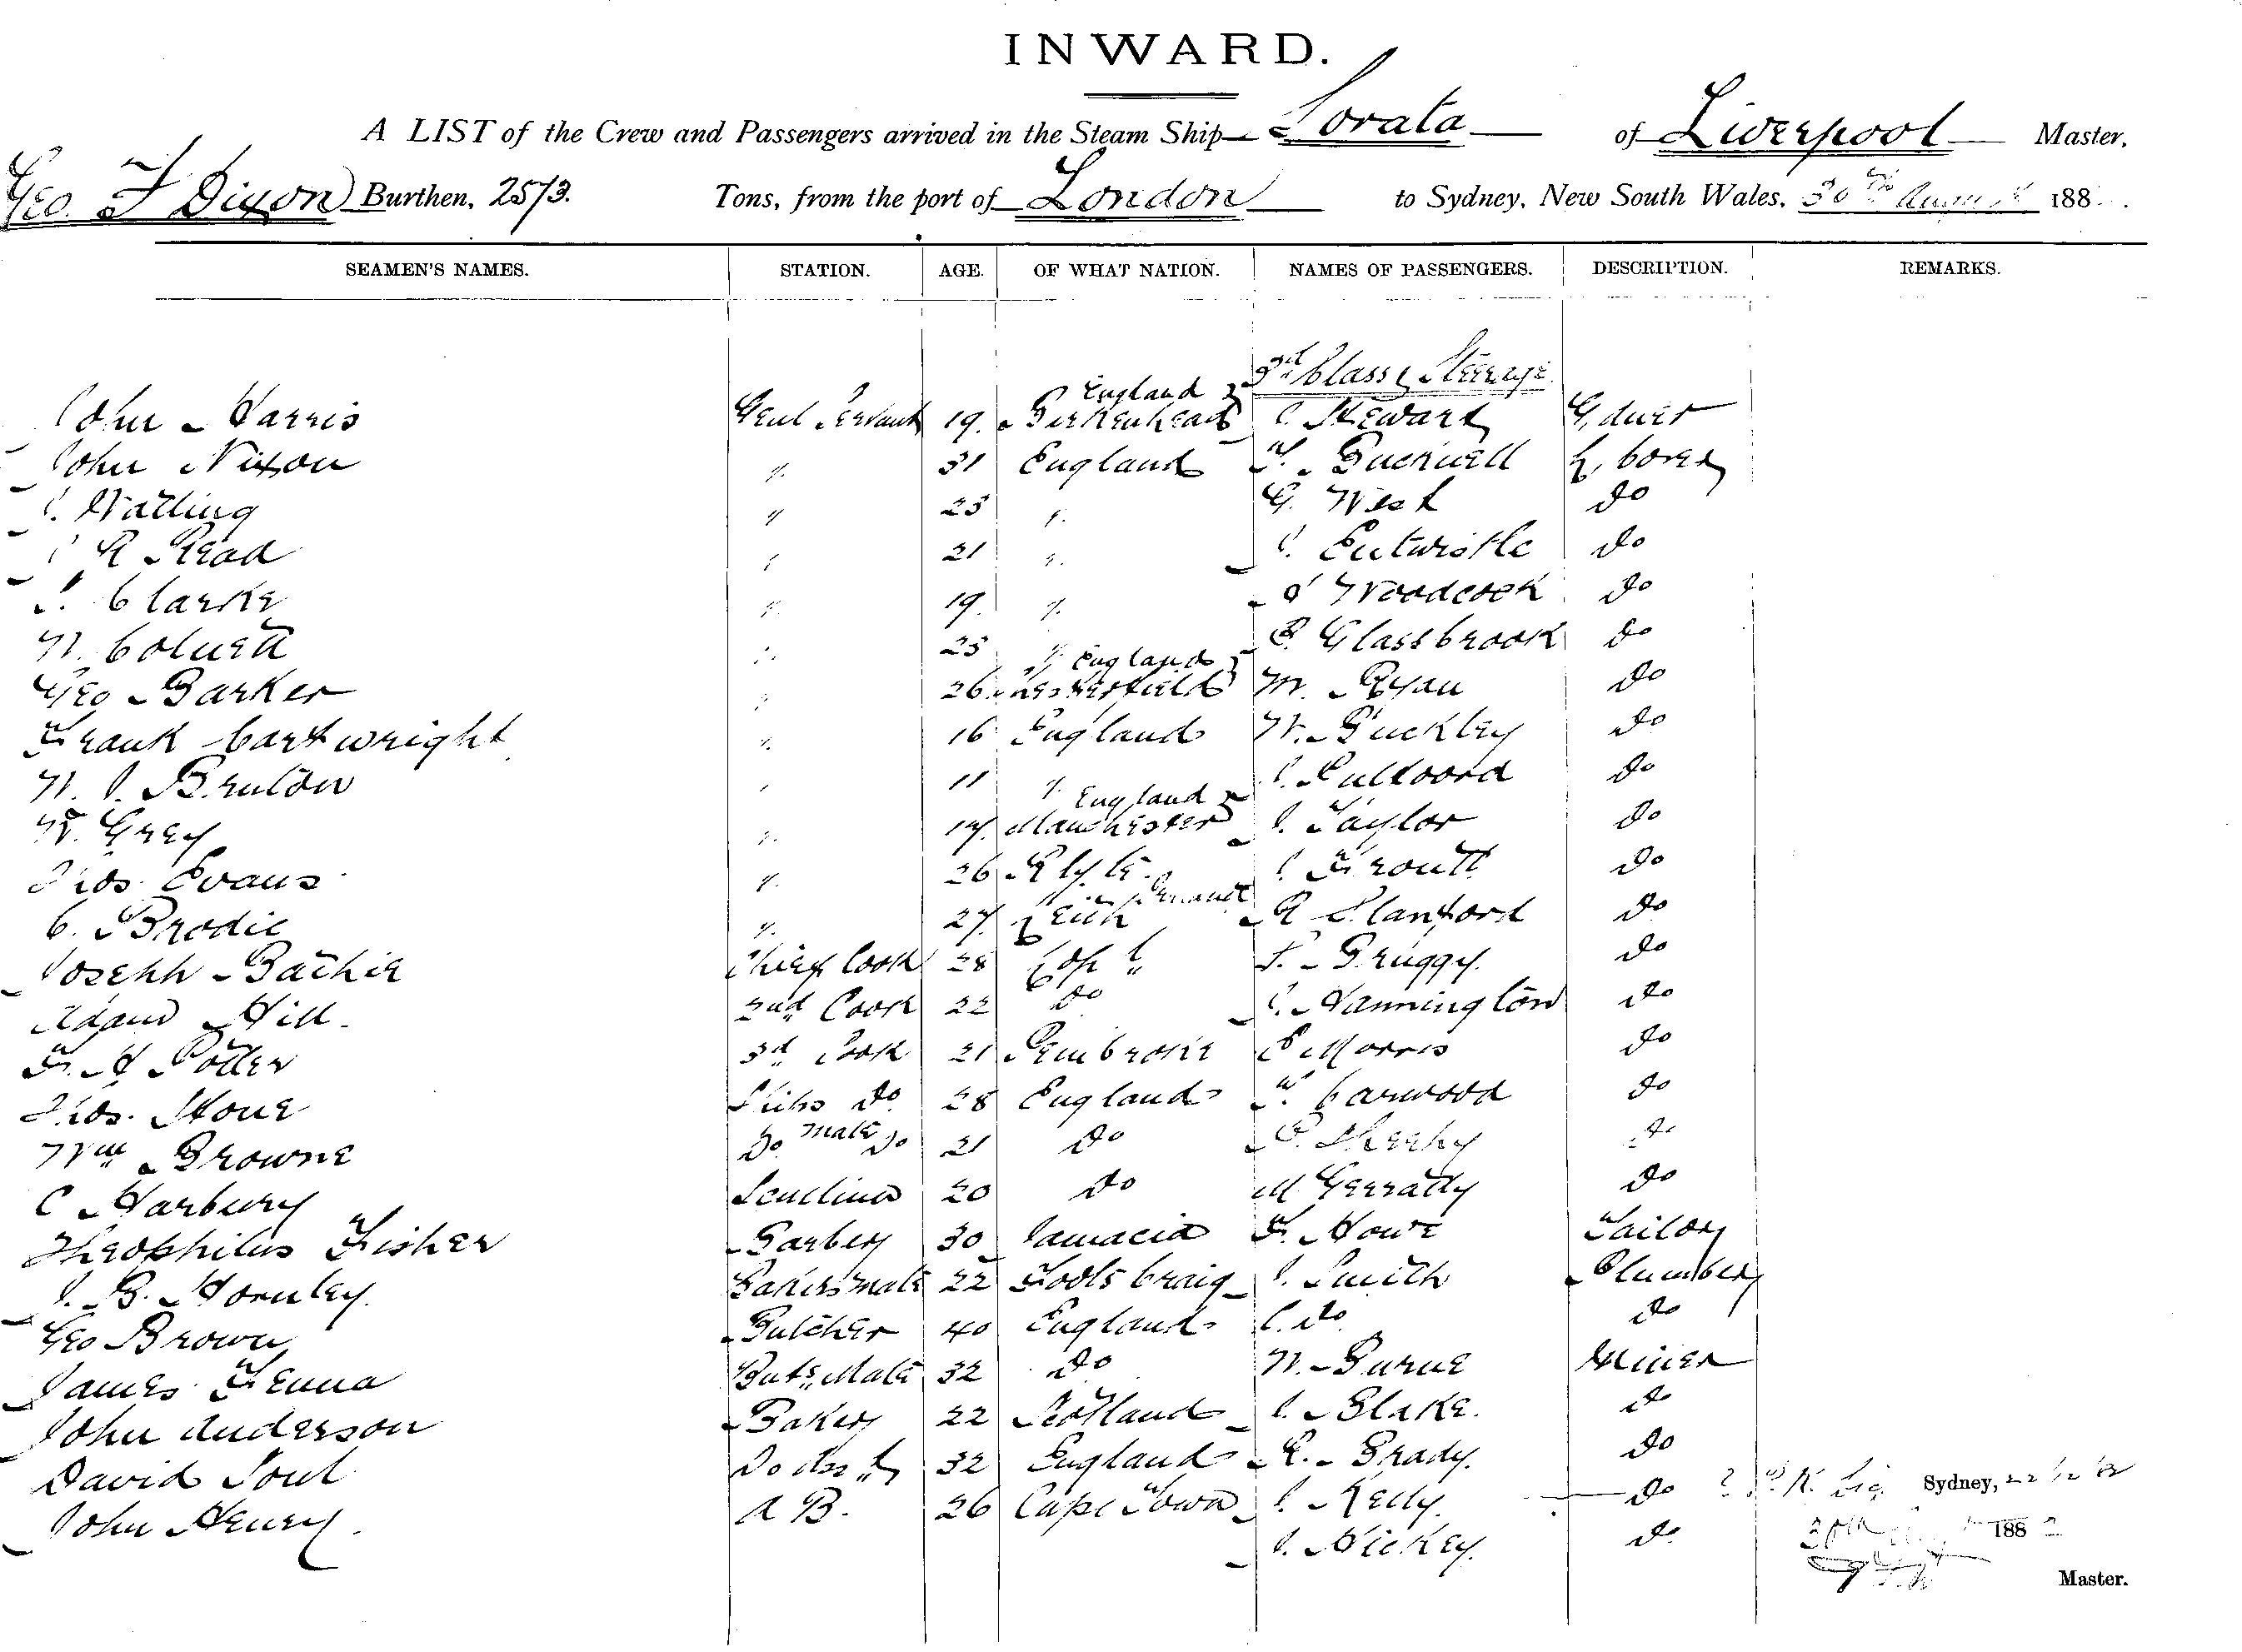 INWARD.
A LIST of the Crew and Passengers arrived in the Steam Ship Sorata of Liverpool Master,
Geo. F Dixon Burthen, 2573. Tons, from the port of London to Sydney, New South Wales, 30th August 188
SEAMEN'S NAMES. STATION. AGE. OF WHAT NATION. NAMES OF PASSENGERS. DESCRIPTION. REMARKS.
3rd Class & Steerage
England
John Harris Genl Servant 19. Birkenhead J. Stewart
John Nixon " 31 England T. Bucknell
J. Watling " 25 " G. West do
J R Read " 21 " J. Entwistle do
J. Clarke " 19. " J Woodcock do
W. " 25 " P. Glassbrook do
England
Geo Barker " 26 M. Ryan do
Frank Cartwright " 16 England W. Buckley do
W. J. Bruton " 11 " J. do
England
W. Grey " 17. Manchester J. Taylor do
Thos. Evans " 26 J. do
C. Brodie " 27. Leith R Stanford do
Joseph Chief Cook 28 S. Bruggy. do
Adam Hill. 2nd Cook 22 do J. Hannington do
F. H Potter 3rd Cook 21 Pembroke P Morris do
Thos. Stone Ships do. 28 England T. Carwood do
Wm Browne do mate do 21 do P. Sheehy do
C Harbury 20 do M Gerratty do
Theophilus Fisher Barber 30 Jamacia F. Howe Tailor
J. B. Hornley. Bakers mate 22 J. Smith Plumber
Geo Brown Butcher 40 England J. do do
James Fenna Buts. Mate 32 do W. Burne Miner
John Anderson Baker 22 Scotland J. Blake. do
David Soul do 32 England R. Grady. do
John Henry. A B. 26 Cape Town J. Kelly. do Sydney,
J. Hickey. do 188 2
Master.